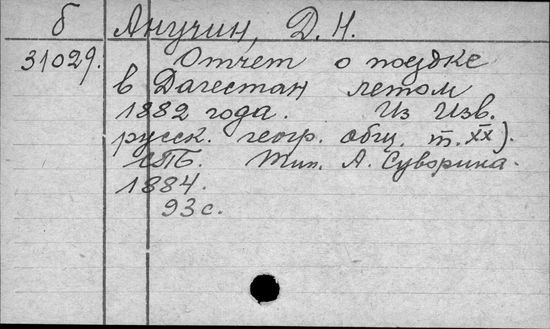 б Анучин, Д. Н.
31029. Отчет о поездке
в Дагестан летом
1882 года. Из Изв.
русск. геогр. общ. т. XX).
СПБ. Тип. А. Суворина.
1884.
93 с.